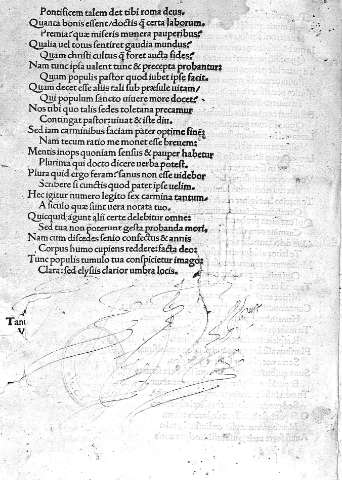 Pontificem talem det tibi roma deus.
Quanta bonis essent doctis q̃ certa laborum.
Premia: quæ miseris munera pauperibus?
Qualia uel totus sentiret gaudia mundus?
Quam christi cultus q̃ foret aucta fides?
Nam tunc ipsa ualent tunc & precepta probantur:
Quam populis pastor quod iubet ipse facit.
Quam decet esse aliis tali sub præsule uitam/
Qui populum sancto uiuere more docet?
Nos tibi quo talis sedes toletana precamur
Contingat pastor: uiuat & iste diu.
Sed iam carminibus faciam pater optime finẽ:
Nam tecum ratio me monet esse breuem:
Mentis inops quoniam sensus & pauper habetur
Plurima qui docto dicere uerba potest.
Plura quid ergo feram? sanus non esse uidebor
Scribere si cunctis quod patet ipse uelim.
Hec igitur numero legito sex carmina tantum.
A siculo quæ sunt uera notata tuo.
Quicquid agunt alii certe delebitur omne:
Sed tua non poterunt gesta probanda mori.
Nam cum discedes senio confectus & annis
Corpus humo cupiens reddere: facta deo:
Tunc populis tumulo tua conspicietur imago:
Clara: sed elysiis clarior umbra locis.
Tant
V